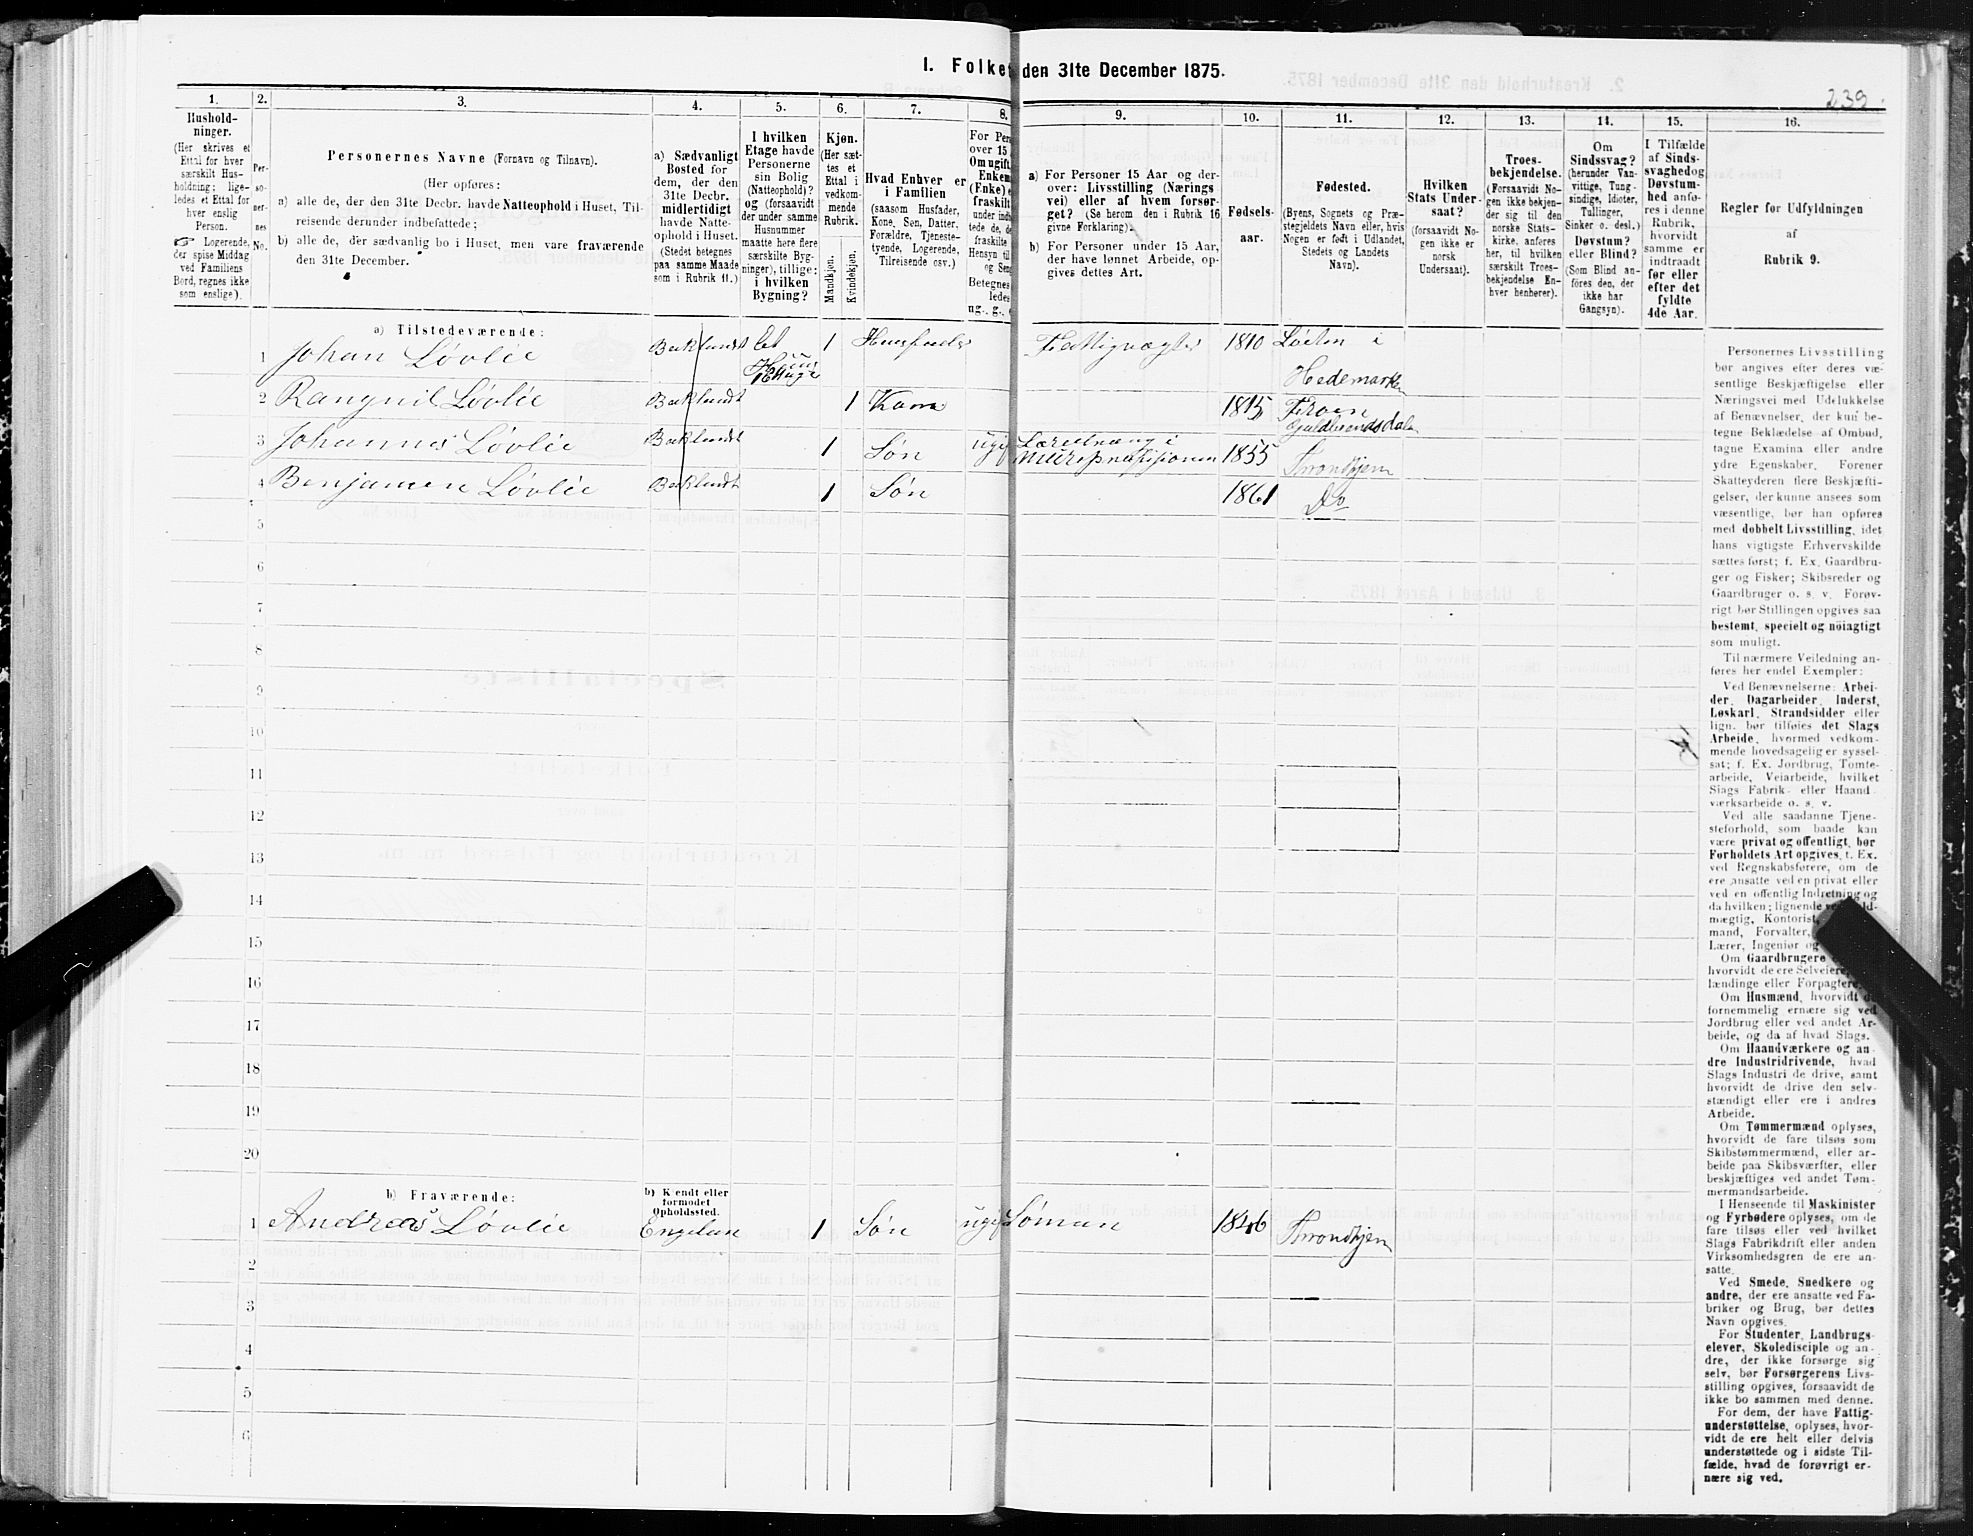 I. Folket den 31te December 1875.
239.
1.
Hushold-
ninger.
(Her skrives et
Ettal for hver
særskilt Hus-
holdning; lige-
ledes et Ettal for
hver enslig
Person.
☞ Logerende,
der spise Middag
ved Familiens
Bord, regnes ikke
som enslige).
2.
Per-
so-
ner-
nes
No.
3.
Personernes Navne (Fornavn og Tilnavn).
(Her opføres:
a) alle de, der den 31te Decbr. havde Natteophold i Huset, Til-
reisende derunder indbefattede;
b) alle de, der sædvanlig bo i Huset, men vare fraværende
den 31te December.
4.
a) Sædvanligt
Bosted for
dem, der den
31te Decbr.
midlertidigt
havde Natte-
ophold i Huset.
(Stedet betegnes
paa samme Maade
som i Rubrik 11.)
5.
I hvilken
Etage havde
Personerne
sin Bolig
(Natteophold)?
og (forsaavidt
der under samme
Husnummer
maatte høre flere
særskilte Byg-
ninger), tillige:
i hvilken
Bygning?
6.
Kjøn.
(Her sæt-
tes et
Ettal i
vedkom-
mende
Rubrik.
Mandkjøn.
Kvindekjøn.
7.
Hvad Enhver er
i Familien
(saasom Husfader,
Kone, Søn, Datter,
Forældre, Tjeneste-
tyende, Logerende,
Tilreisende osv.)
8.
For Per
over 15
Om ugift,
Enkem
(Enke)
fraskilt
9.
a) For Personer 15 Aar og der-
over: Livsstilling (Nærings
vei) eller af hvem forsør-
get? (Se herom den i Rubrik 16
givne Forklaring).
b) For Personer under 15 Aar,
der have lønnet Arbeide, op-
gives dettes Art.
10.
Fødsels-
aar.
11.
Fødested.
(Byens, Sognets og Præ-
stegjeldets Navn eller, hvis
Nogen er født i Udlandet,
Stedets og Landets
Navn).
12.
Hvilken
Stats Under-
saat?
(forsaavidt No-
gen ikke er
norsk
Undersaat).
13.
Troes-
bekjendelse.
(Forsaavidt No-
gen ikke bekjen-
der sig til den
norske Stats-
kirke, anføres
her, til hvilken
særskilt Troes-
bekjendelse En-
hver henhører).
14.
Om
Sindssvag?
(herunder Van-
vittige, Tung-
sindige, Idioter,
Tullinger,
Sinker o. desl.)
Døvstum?
eller Blind?
(Som Blind an-
føres den, der
ikke har
Gangsyn).
15.
I Tilfælde
af Sinds-
svaghed og
Døvstum-
hed anfø-
res i denne
Rubrik,
hvorvidt
samme er
indtraadt
før eller
efter det
fyldte
4de Aar.
16.
Regler for Udfyldningen
af
Rubrik 9.
a) Tilstedeværende:
1 Johan Løvlie Baklandt 1 Huusfader Fattigvægter 1810 Løeten i
1 Etage Hedemarken
2 Rangnil Løvlie Baklandt 1 Kone 1815 Froen
Guldbrandsdalen
3 Johannes Løvlie Baklandt 1 Søn ugif Læredreng i
Murerprofesjonen 1855 Trondhjem
4 Benjamin Løvlie Baklandt 1 Søn 1861 Do
5
6
7
8
9
10
11
12
13
14
15
16
17
18
19
20
b) Fraværende:
b) Kendt eller
formodet
Opholdssted.
1 Andreas Løvlie Engelan 1 Søn ugif Søman 1846 Trondhjem
2
3
4
5
6
Personernes Livsstilling
bør angives efter deres væ-
sentlige Beskjæftigelse eller
Næringsvei med Udelukkelse
af Benævnelser, der kun be-
tegne Beklædelse af Ombud,
tagne Examina eller andre
ydre Egenskaber. Forener
Skatteyderen flere Beskjæfti-
gelser, der kunne ansees som
væsentlige, bør han opføres
med dobbelt Livsstilling, idet
hans vigtigste Erhvervskilde
sættes først; f. Ex. Gaardbru-
ger og Fisker; Skibsreder og
Gaardbruger o. s. v. Forøv-
rigt bør Stillingen opgives saa
bestemt, specielt og nöiagtigt
som muligt.
Til nærmere Veiledning an-
føres her endel Exempler:
Ved Benævnelserne: Arbei-
der, Dagarbeider, Inderst,
Løskarl, Strandsidder eller
lign. bør tilføies det Slags
Arbeide, hvormed vedkom-
mende hovedsagelig er syssel-
sat; f. Ex. Jordbrug, Tomte-
arbeide, Veiarbeide, hvilket
Slags Fabrik- eller Haand-
værksarbeide o. s. v.
Ved alle saadanne Tjene-
steforhold, som baade kan
være privat og offentligt, bør
Forholdets Art opgives, f. Ex.
ved Regnskabsførere, om de
ere ansatte ved en privat eller
ved en offentlig Indretning og
da hvilken; lignende
mægtig, Kontorist,
mand, Forvalter,
Lærer, Ingeniør og
Om Gaardbrugere
hvorvidt de ere Selveiere,
lændinge eller Forpagtere.
Om Husmænd, hvorvidt de
fornemmelig ernære sig ved
Jordbrug eller ved andet Ar-
beide, og da af hvad Slags.
Om Haandværkere og an-
dre Industridrivende, hvad
Slags Industri de drive, samt
hvorvidt de drive den selv-
stændigt eller ere i andres
Arbeide.
Om Tømmermænd oplyses,
hvorvidt de fare tilsøs som
Skibstømmermænd, eller ar-
beide paa Skibsværfter, eller
beskjæftiges ved andet Tøm-
mermandsarbeide.
I Henseende til Maskinister
og Fyrbødere oplyses, om de
fare tilsøs eller ved hvilket
Slags Fabrikdrift eller anden
Virksomhedsgren de ere an-
satte.
Ved Smede, Snedkere og
andre, der ere ansatte ved Fa-
briker og Brug, bør dettes
Navn opgives.
For Studenter, Landbrugs-
elever, Skoledisciple og an-
dre, der ikke forsørge sig
selv, bør Forsørgerens Livs-
stilling opgives, forsaavidt de
ikke bo sammen med denne.
For dem, der have Fattig-
understøttelse, oplyses, hvor-
vidt de ere helt eller delvis
understøttede og i sidste Til-
fælde, hvad de forøvrigt er-
nære sig ved.